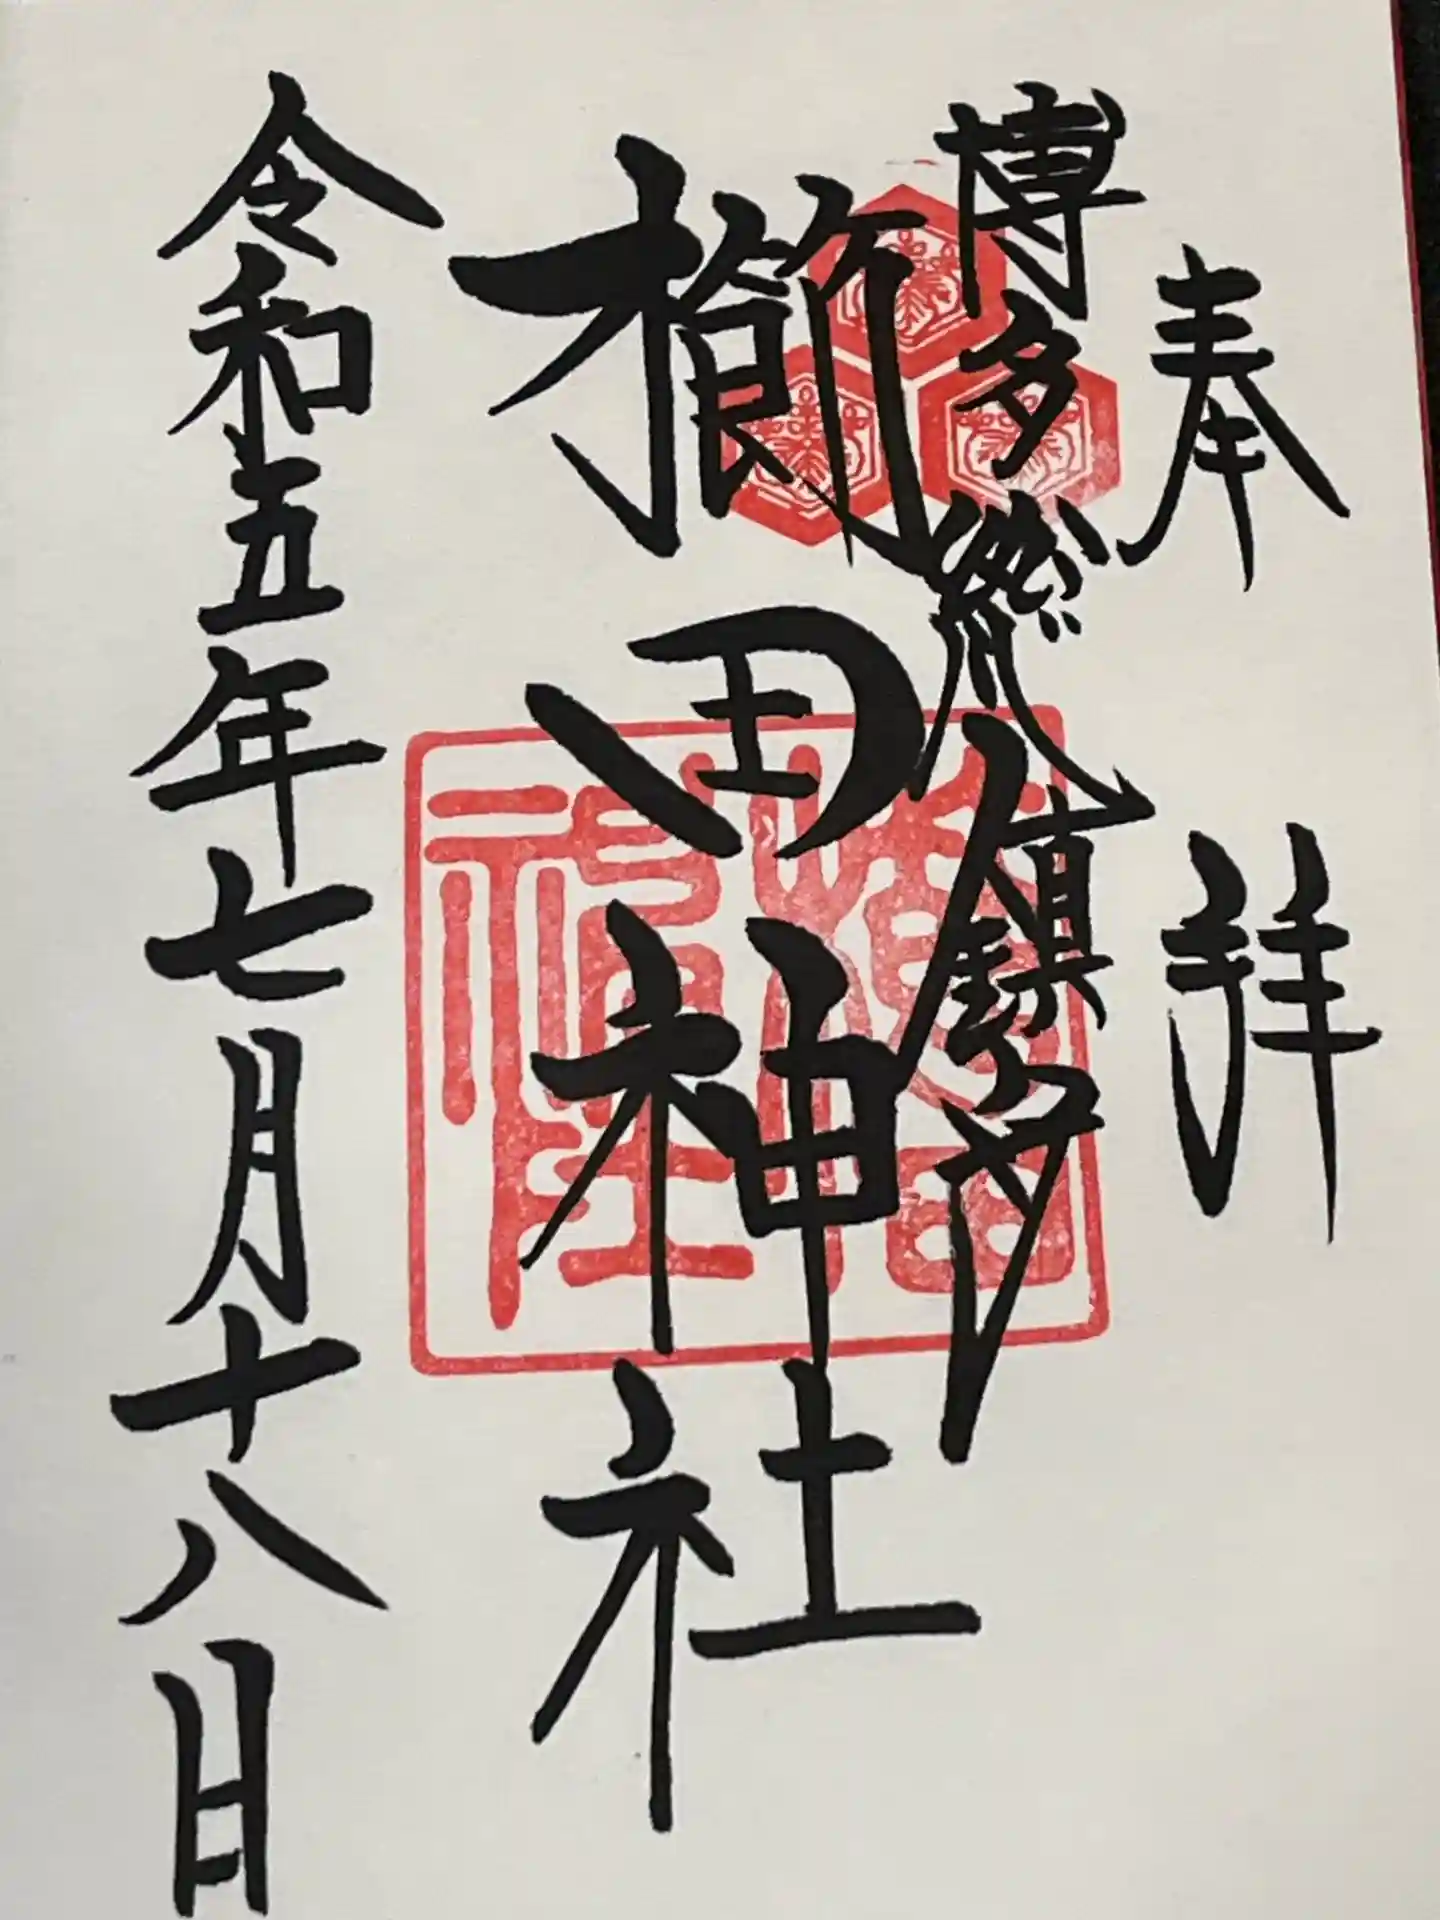 奉拝
博多總鎮守
櫛田神社
令和五年七月十八日